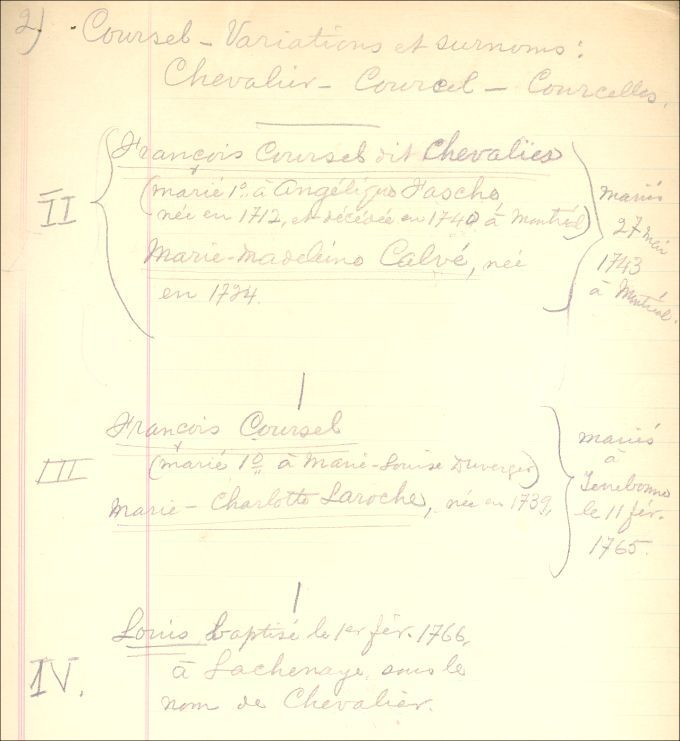 2) Coursel - Variations et surnoms:
Chevalier - Courcel - Courcelles.
II
François Coursel dit Chevalier
(marié 1º à Angélique Fascho
née en 1712, et décédée en 1740 à Montréal)
Marie-Madeleine Calvé, née
en 1724.
mariés
27 mai
1743
à Montréal.
III
François Coursel
(marié 1º à Marie-Louise Duverger)
Marie-Charlotte Laroche, née en 1739,
mariés
à
Terrebonne
le 11 fév.
1765.
IV.
Louis, baptisé le 1er fév. 1766,
à Lachenaye, sous le
nom de Chevalier.